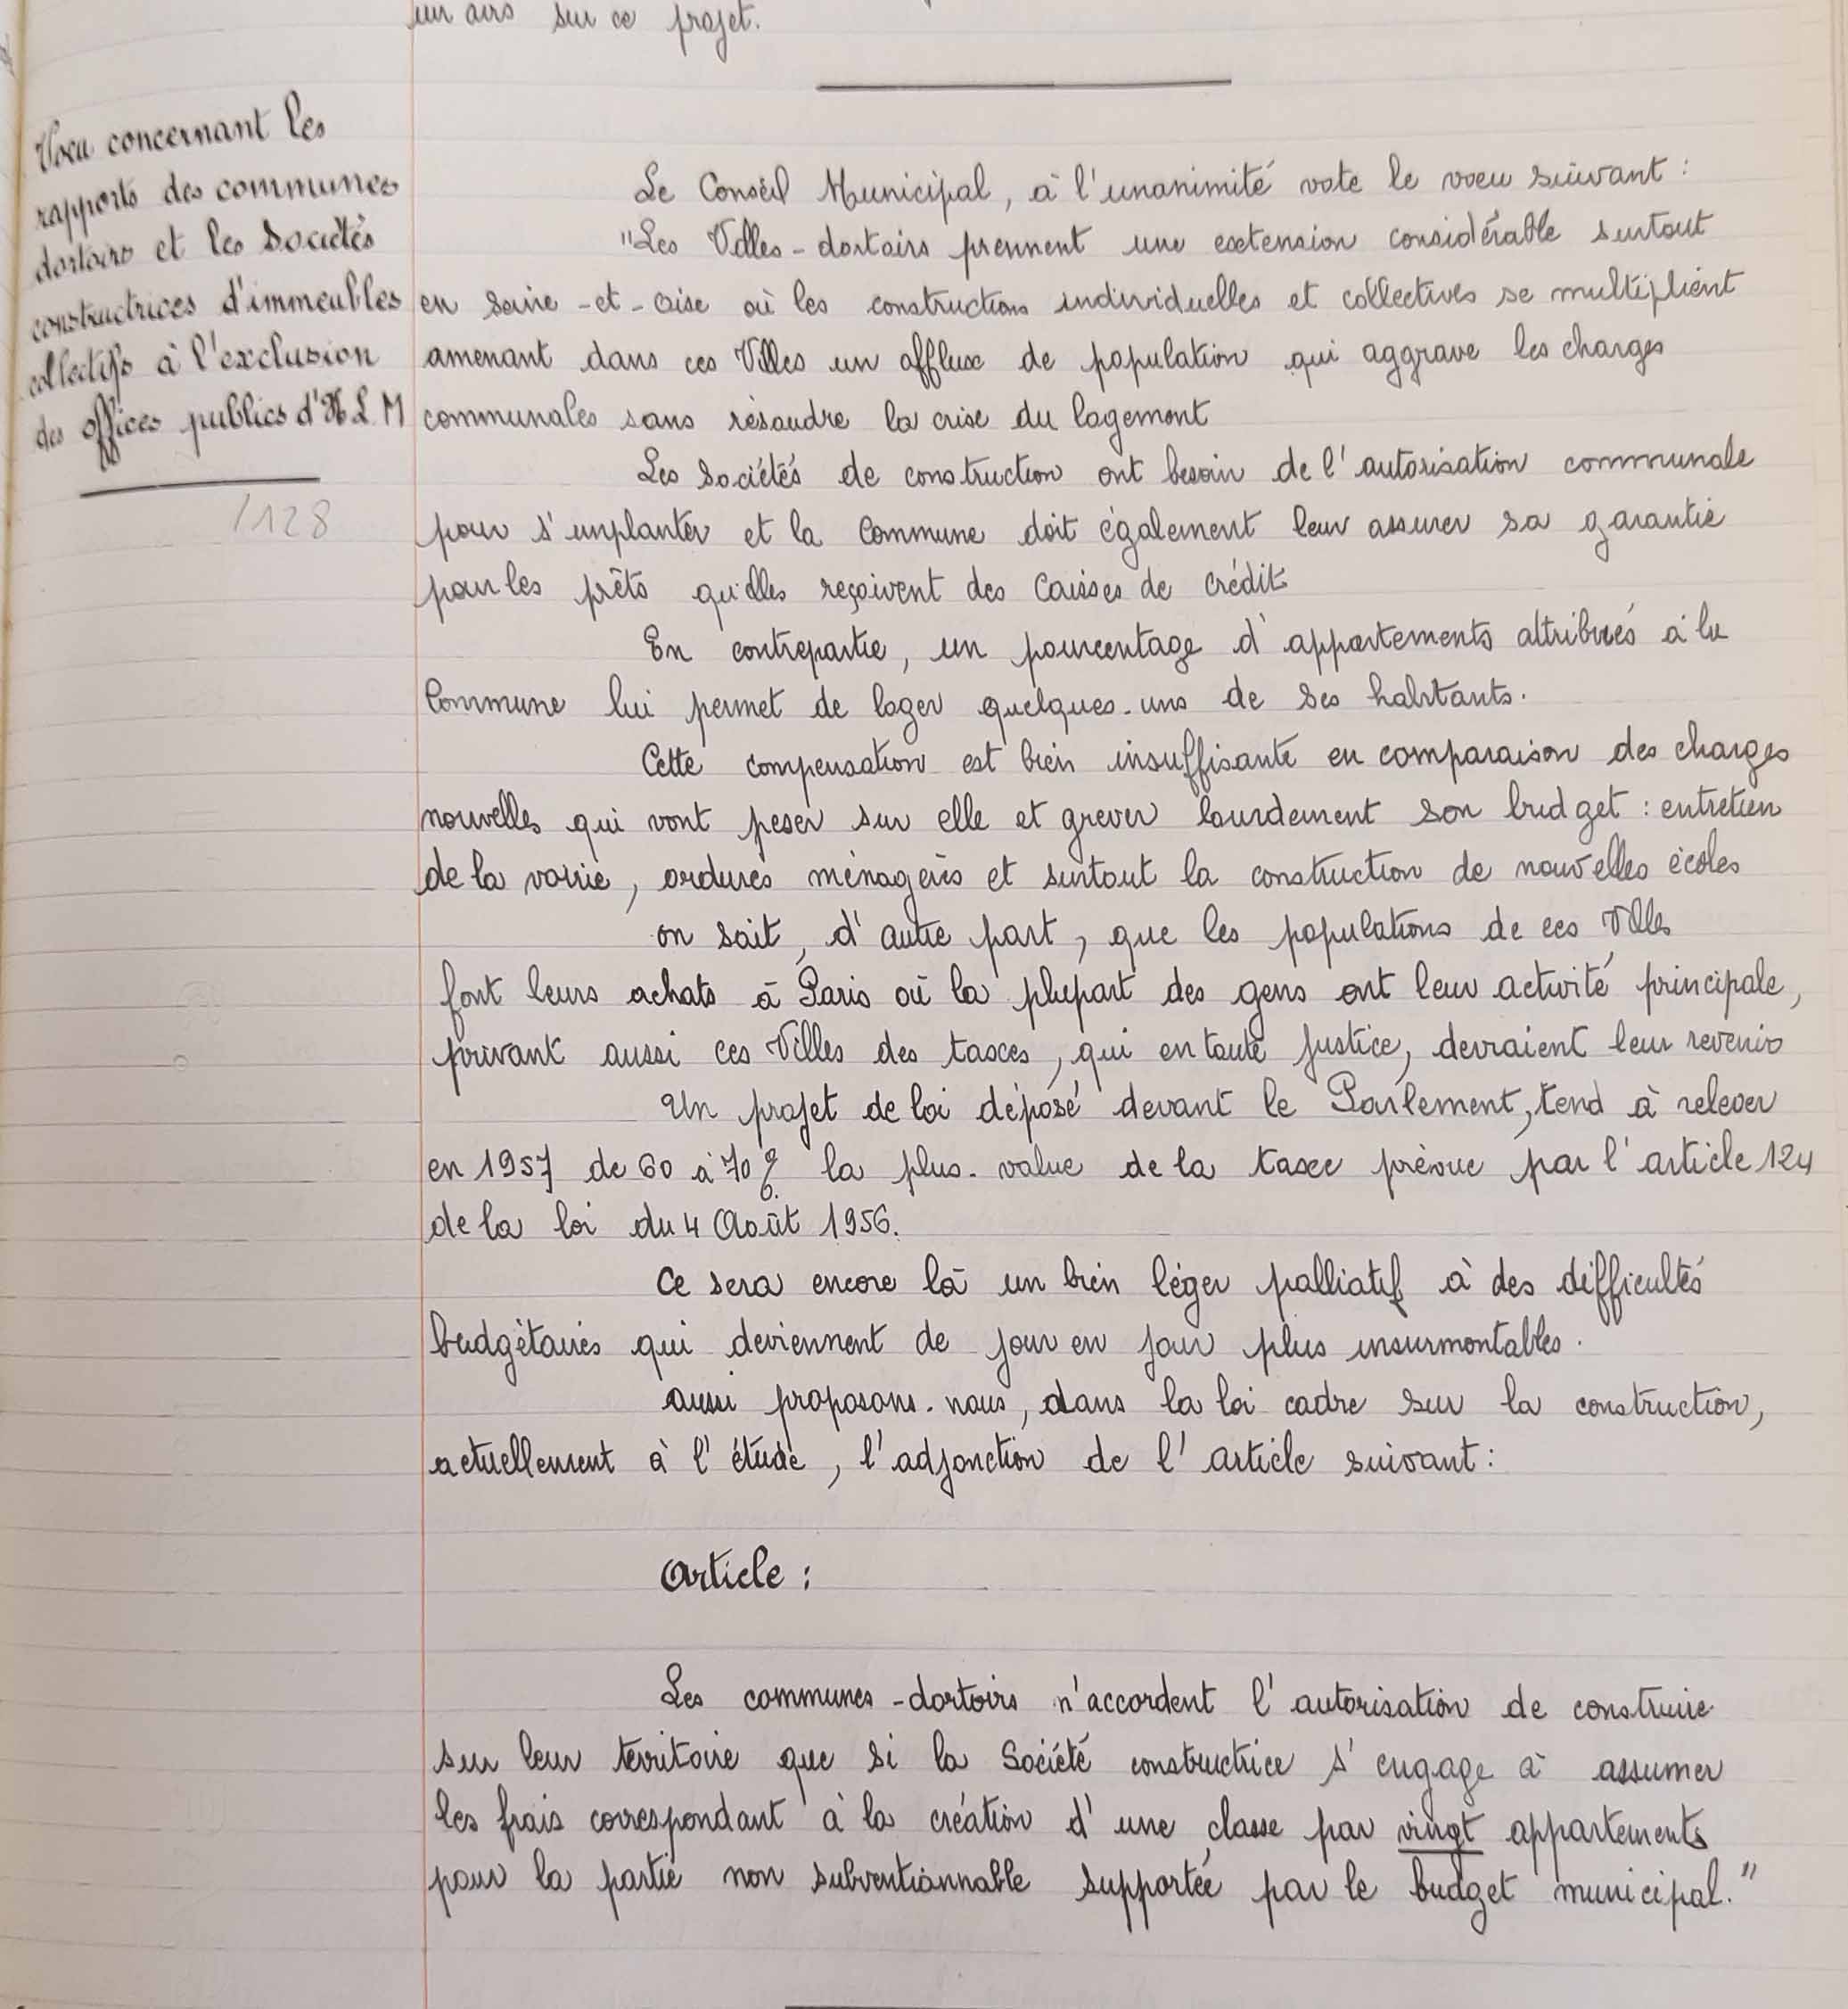 sur ce projet.
Voeu concernant les
rapports des communes
dortoirs et les Sociétés
constructrices d'immeubles
collectifs à l'exclusion
des offices publics d'H L M
1128
Le Conseil Municipal, à l'unanimité vote le voeu suivant :
"Les Villes-dortoirs prennent une extension considérable surtout
en Seine-et-Oise où les constructions individuelles et collectives se multiplient
amenant dans ces Villes un afflux de population qui aggrave les charges
communales sans résoudre la crise du logement
Les Sociétés de construction ont besoin de l'autorisation communale
pour s'implanter et la Commune doit également leur assurer sa garantie
pour les prêts qu'elles reçoivent des Caisses de Crédit
En contrepartie, un pourcentage d'appartements attribués à la
Commune lui permet de loger quelques-uns de ses habitants.
Cette compensation est bien insuffisante en comparaison des charges
nouvelles qui vont peser sur elle et grever lourdement son budget : entretien
de la voirie, ordures ménagères et surtout la construction de nouvelles écoles
on sait, d'autre part, que les populations de ces Villes
font leurs achats à Paris où la plupart des gens ont leur activité principale,
privant aussi ces Villes des taxes, qui en toute justice, devraient leur revenir
Un projet de loi déposé devant le Parlement, tend à relever
en 1957 de 60 à 70 % la plus-value de la taxe prévue par l'article 124
de la loi du 4 Août 1956.
Ce sera encore là un bien léger palliatif à des difficultés
budgétaires qui deviennent de jour en jour plus insurmontables.
aussi proposons-nous, dans la loi cadre sur la construction,
actuellement à l'étude, l'adjonction de l'article suivant :
Article :
Les communes-dortoirs n'accordent l'autorisation de construire
sur leur territoire que si la Société constructrice s'engage à assumer
les frais correspondant à la création d'une classe par vingt appartements
pour la partie non subventionnable supportée par le budget municipal."